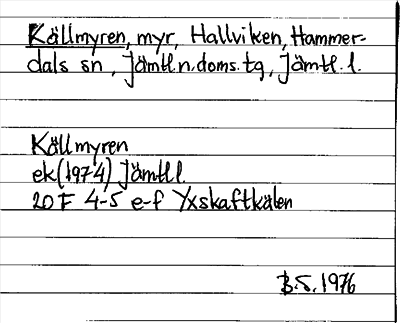 Källmyren, myr, Hallviken, Hammer-
dals sn, Jämtl.n.doms.tg, Jämtl.l.
Källmyren
ek(1974) Jämtl l.
20 F 4-5 e-f Yxskaftkälen
B.S. 1976